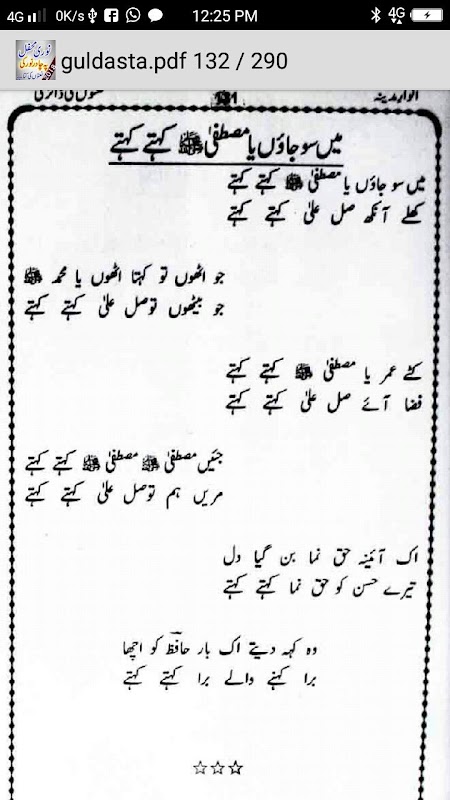 4G 0K/s 12:25 PM 4G
guldasta.pdf 132 / 290
انوار مدینہ
میں سو جاؤں یا مصطفیٰ ﷺ کہتے کہتے
میں سو جاؤں یا مصطفیٰ ﷺ کہتے کہتے
کھلے آنکھ صل علیٰ کہتے کہتے
جو اٹھوں تو کہتا اٹھوں یا محمد ﷺ
جو بیٹھوں تو صل علیٰ کہتے کہتے
کٹے عمر یا مصطفیٰ ﷺ کہتے کہتے
قضا آئے صل علیٰ کہتے کہتے
جئیں مصطفیٰ ﷺ مصطفیٰ ﷺ کہتے کہتے
مریں ہم تو صل علیٰ کہتے کہتے
اک آئینہ حق نما بن گیا دل
تیرے حسن کو حق نما کہتے کہتے
وہ کہہ دیتے اک بار حافظؔ کو اچھا
برا کہنے والے برا کہتے کہتے
☆☆☆